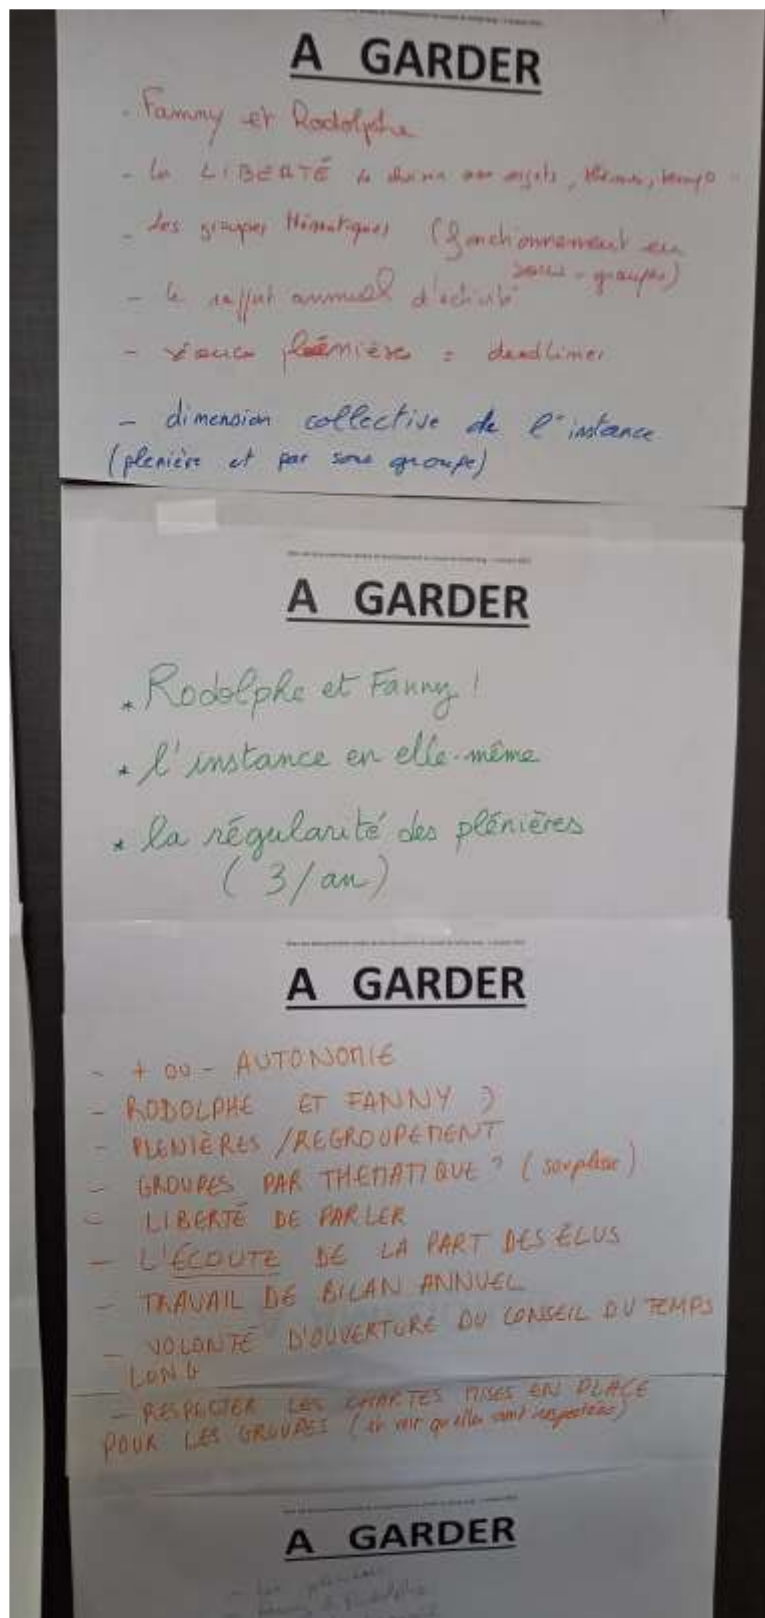 A GARDER
- Fanny et Rodolphe
- la LIBERTÉ de choisir nos sujets, thèmes, temps
- des groupes thématiques (fonctionnement en
sous-groupes)
- le rapport annuel d'activité
- séance plénière = deadlines
- dimension collective de l'instance
(plenière et par sous groupe)
A GARDER
* Rodolphe et Fanny !
* l'instance en elle-même
* la régularité des plénières
(3/an)
A GARDER
- + ou - AUTONOMIE
- RODOLPHE ET FANNY :)
- PLENIÈRES /REGROUPEMENT
- GROUPES PAR THEMATIQUE ? (souplesse)
- LIBERTÉ DE PARLER
- L'ÉCOUTE DE LA PART DES ÉLUS
- TRAVAIL DE BILAN ANNUEL
- VOLONTÉ D'OUVERTURE DU CONSEIL DU TEMPS
LONG
- RESPECTER LES CHARTES MISES EN PLACE
POUR LES GROUPES (et voir qu'elles sont respectées)
A GARDER
- Fanny & Rodolphe